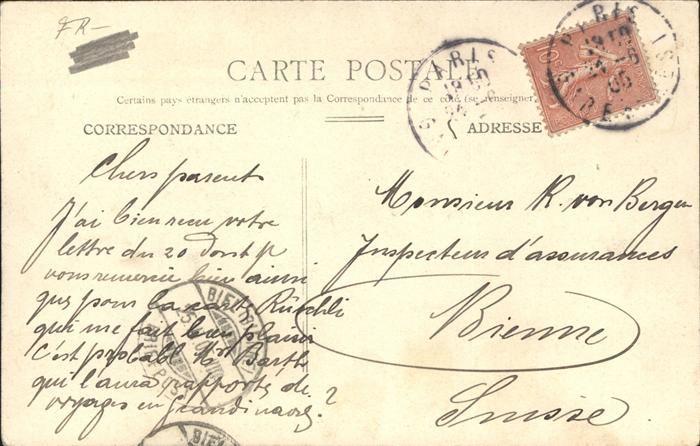 FR-
CARTE POSTALE
Certains pays étrangers n'acceptent pas la Correspondance de ce côté (se renseigner
CORRESPONDANCE
ADRESSE
Chers parents
J'ai bien reçu votre
lettre du 20 dont je
vous remercie bien ainsi
que pour la carte Rüschli
qui me fait bien plaisir
c'est probabl. Mr Barth
qui l'aura rapportée de
voyages en Scandinavie?
Monsieur R. von Bergen
Inspecteur d'assurances
Bienne
Suisse
PARIS
PARIS
10
BIEL
BIEL